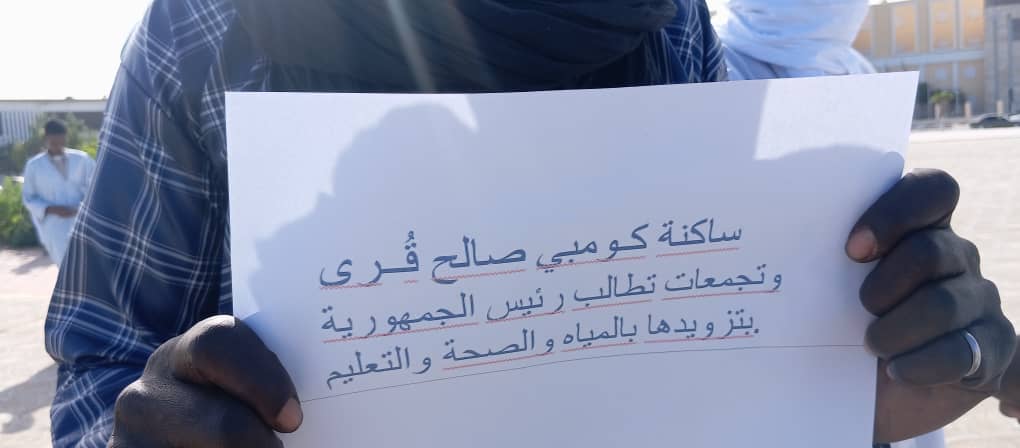 ساكنة كـومبي صالح قُــرى
وتجمعات تطالب رئيس الجمهورية
بتزويدها بالمياه والصحة والتعليم